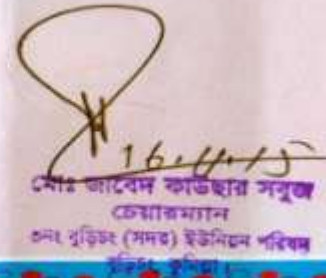 16.4.15
মোঃ জাবেদ কাউছার সবুজ
চেয়ারম্যান
৩নং বুড়িচং (সদর) ইউনিয়ন পরিষদ
বুড়িচং, কুমিল্লা।